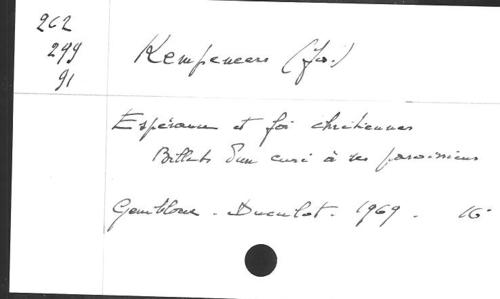 262
299
91
Kempeneers (Jos.)
Espérance et foi chrétiennes
Billets d'un curé à ses paroissiens
Gembloux. Duculot. 1969. 16°